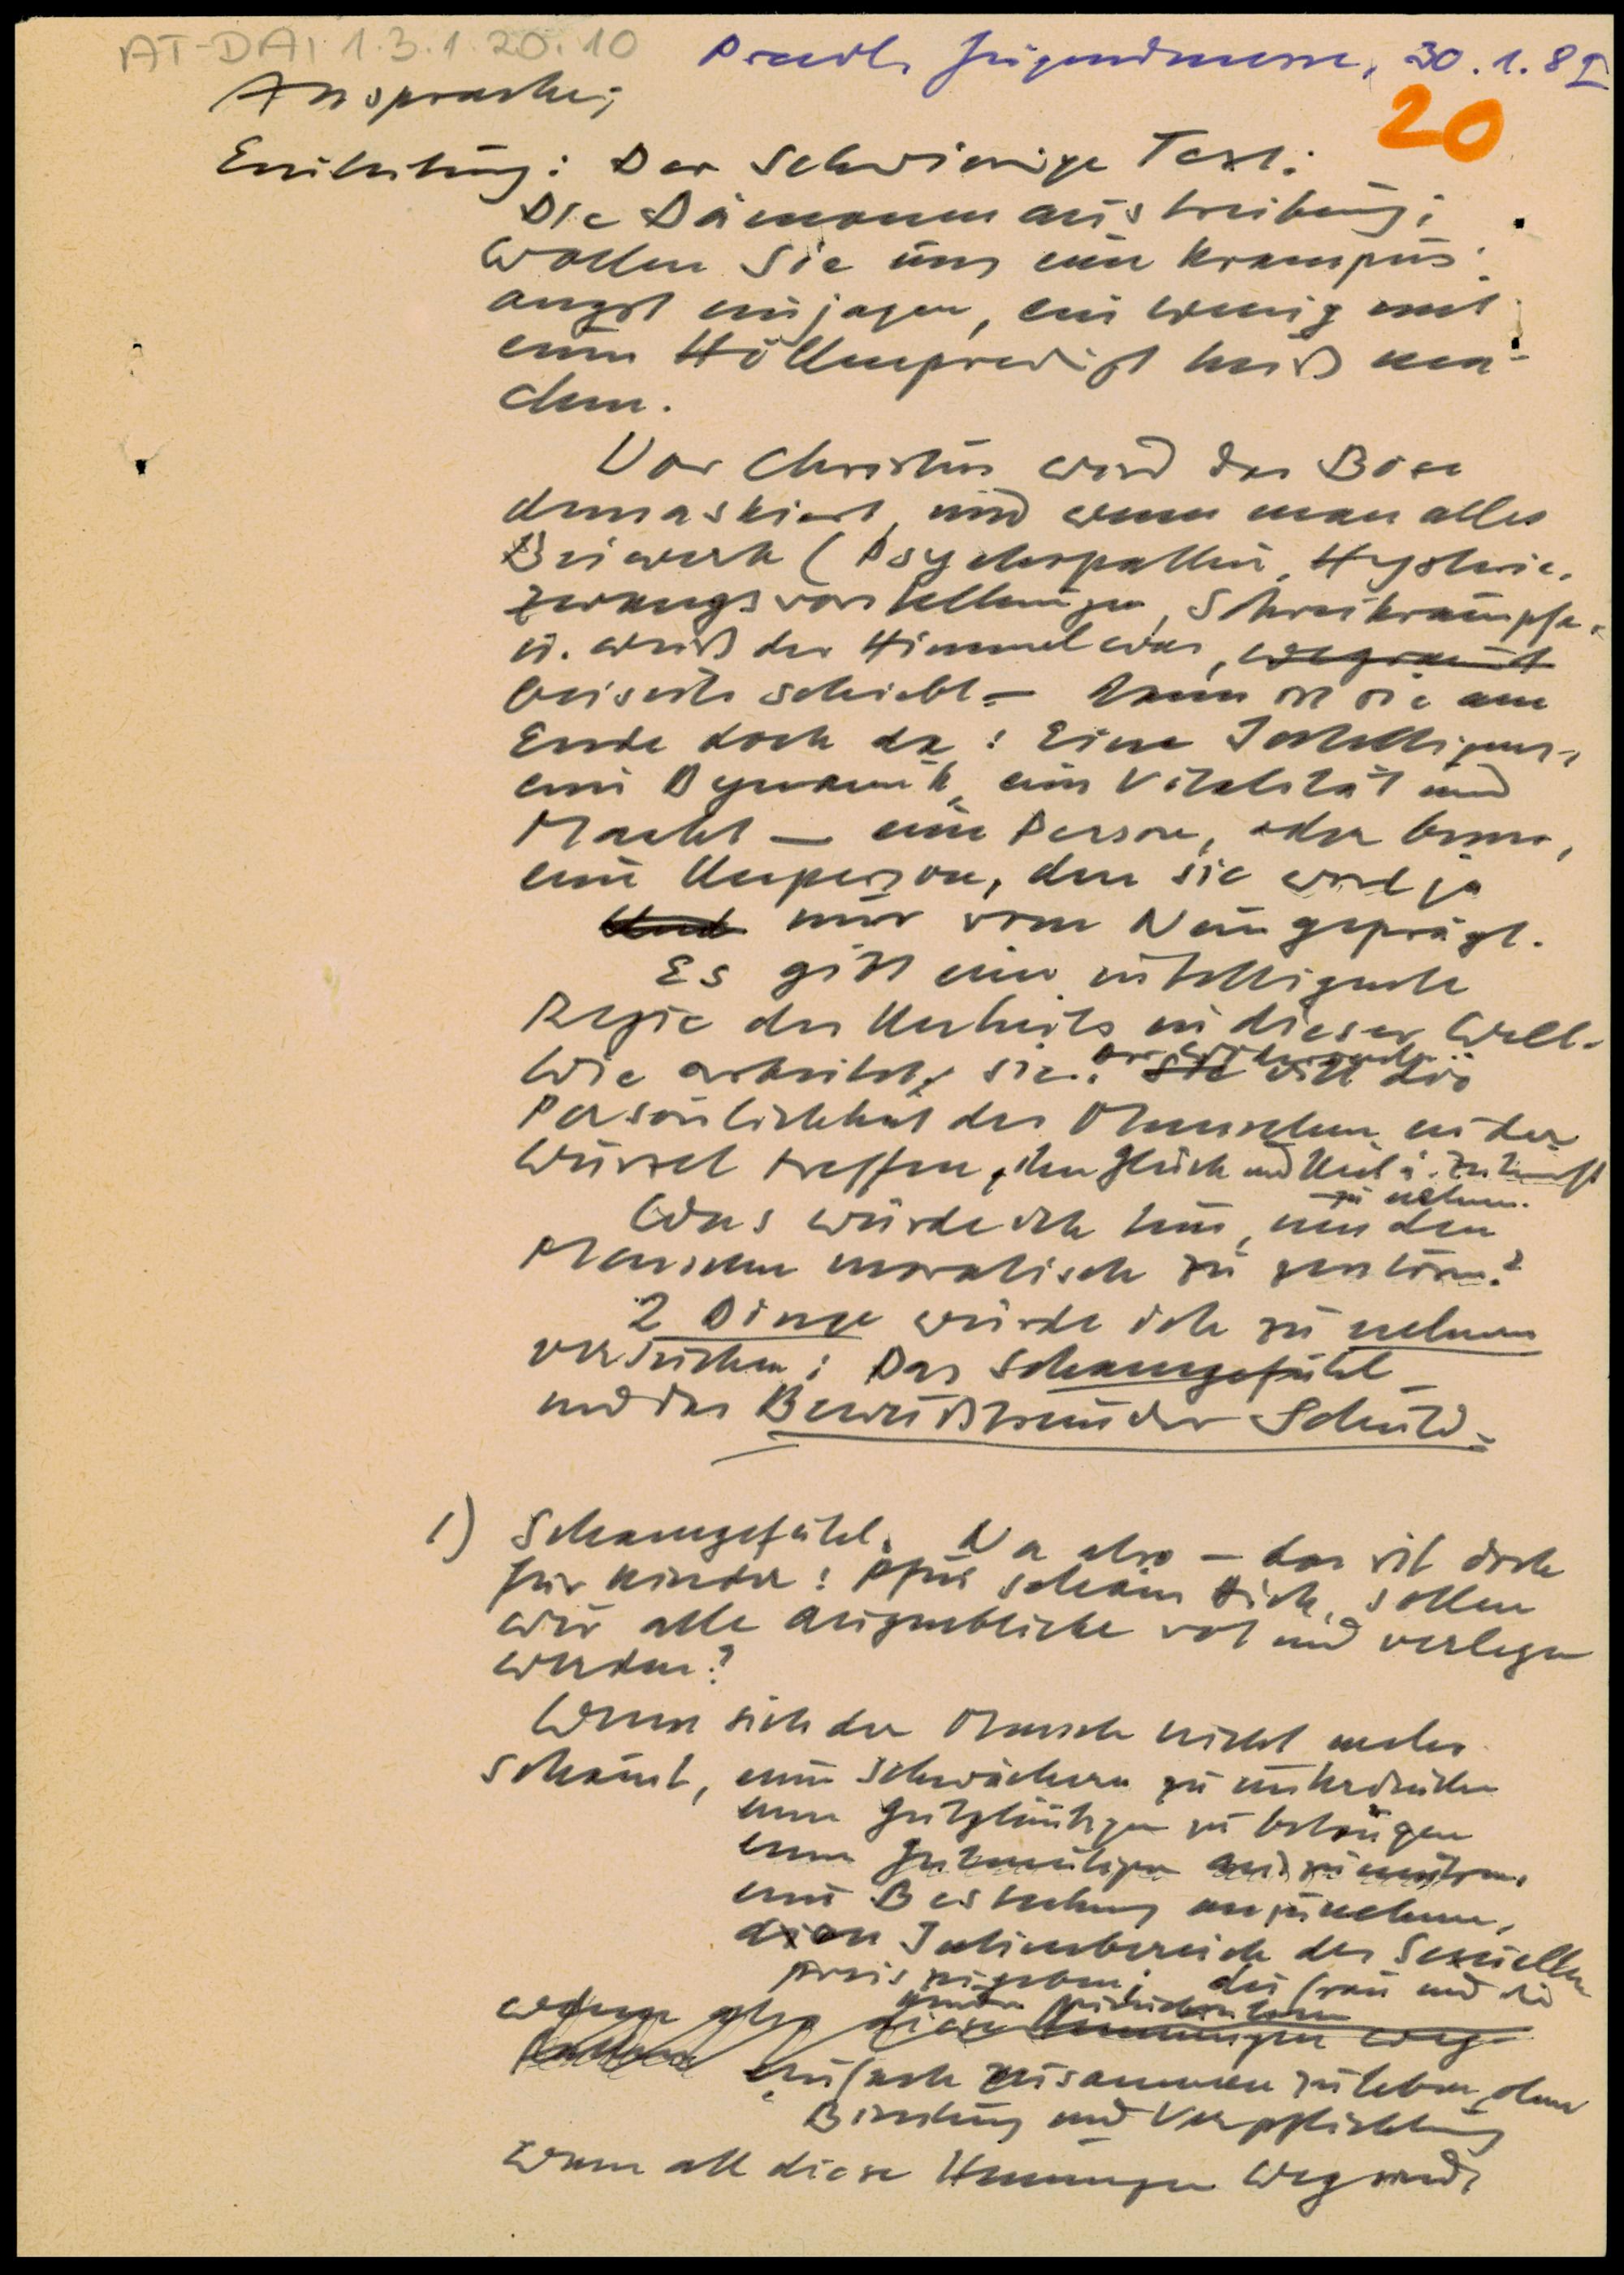 AT-DAI 1.3.1.20.10
Pradl, Jugendmesse, 30.1.82
20
Ansprache;
Einleitung: Der schwierige Text:
Die Dämonenaustreibung;
Wollen Sie uns eine Krampus-
angst einjagen, ein wenig mit
einer Höllenpredigt heiß ma-
chen.
Vor Christus wird das Böse
demaskiert, und wenn man alles
Beiwerk (Psychopathie, Hysterie,
Zwangsvorstellungen, Schreikrämpfe,
u. weiß der Himmel was, wegräumt
beiseite schiebt - dann ist sie am
Ende doch da: Eine Intelligenz,
eine Dynamik, eine Vitalität und
Macht - eine Person, oder besser,
eine Unperson, denn sie wird ja
Und nur vom Nein geprägt.
Es gibt eine intelligente
Regie des Unheils in dieser Welt.
Wie arbeitet sie? Sie will die
Persönlichkeit des Menschen in der
Wurzel treffen, ihm Glück und Heil u. Zukunft
zu nehmen.
Was würde ich tun, um den
Menschen moralisch zu zerstören?
2 Dinge würde ich zu nehmen
versuchen: Das Schamgefühl
und das Bewußtsein der Schuld.
1) Schamgefühl. Na also - das ist doch
für Kinder: Pfui schäm dich, sollen
wir alle Augenblicke rot und verlegen
werden?
Wenn sich der Mensch nicht mehr
schämt, einen Schwächeren zu unterdrücken
einen Gutgläubigen zu betrügen
einen Gutmütigen auszunützen,
eine Bestechung anzunehmen,
den Intimbereich des Sexuellen
preiszugeben; die Frau und die
wenn also diese Hemmungen weg
einfach zusammen zu leben, ohne
Bindung und Verpflichtung
wenn all diese Hemmungen weg sind,